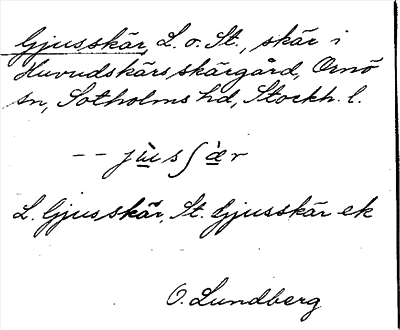 Gjusskär, L. o. St., skär i
Huvudskärs skärgård, Ornö
sn, Sotholms hd, Stockh. l.
-- jùsʃæ̀r
L. Gjusskär, St. Gjusskär ek
O. Lundberg